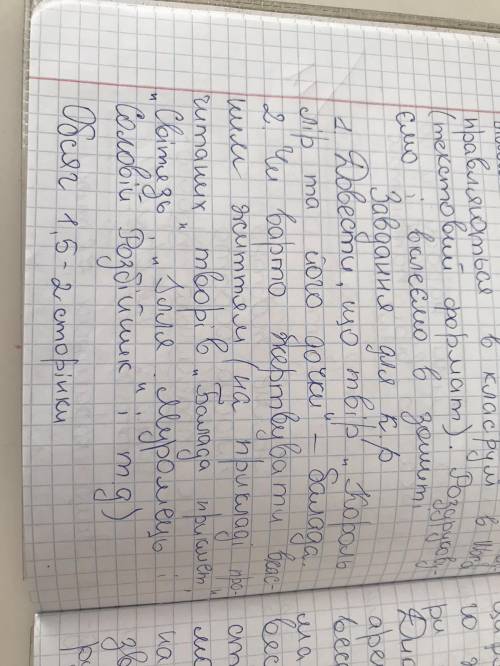 правляються в класрум в
(текстовий формат). Роздрукову-
ємо і вклеємо в зошит,
Завдання для к.р
1. Довести, що твір „Король
Лір та його дочки" – балада.
2. Чи варто жертвувати влас-
ним життям (на прикладі про-
читаних творів „Балада прикмет",
„Світязь", „Ілля Муромець і
Соловій Розбійник" і тд)
Обсяг 1,5-2 сторінки